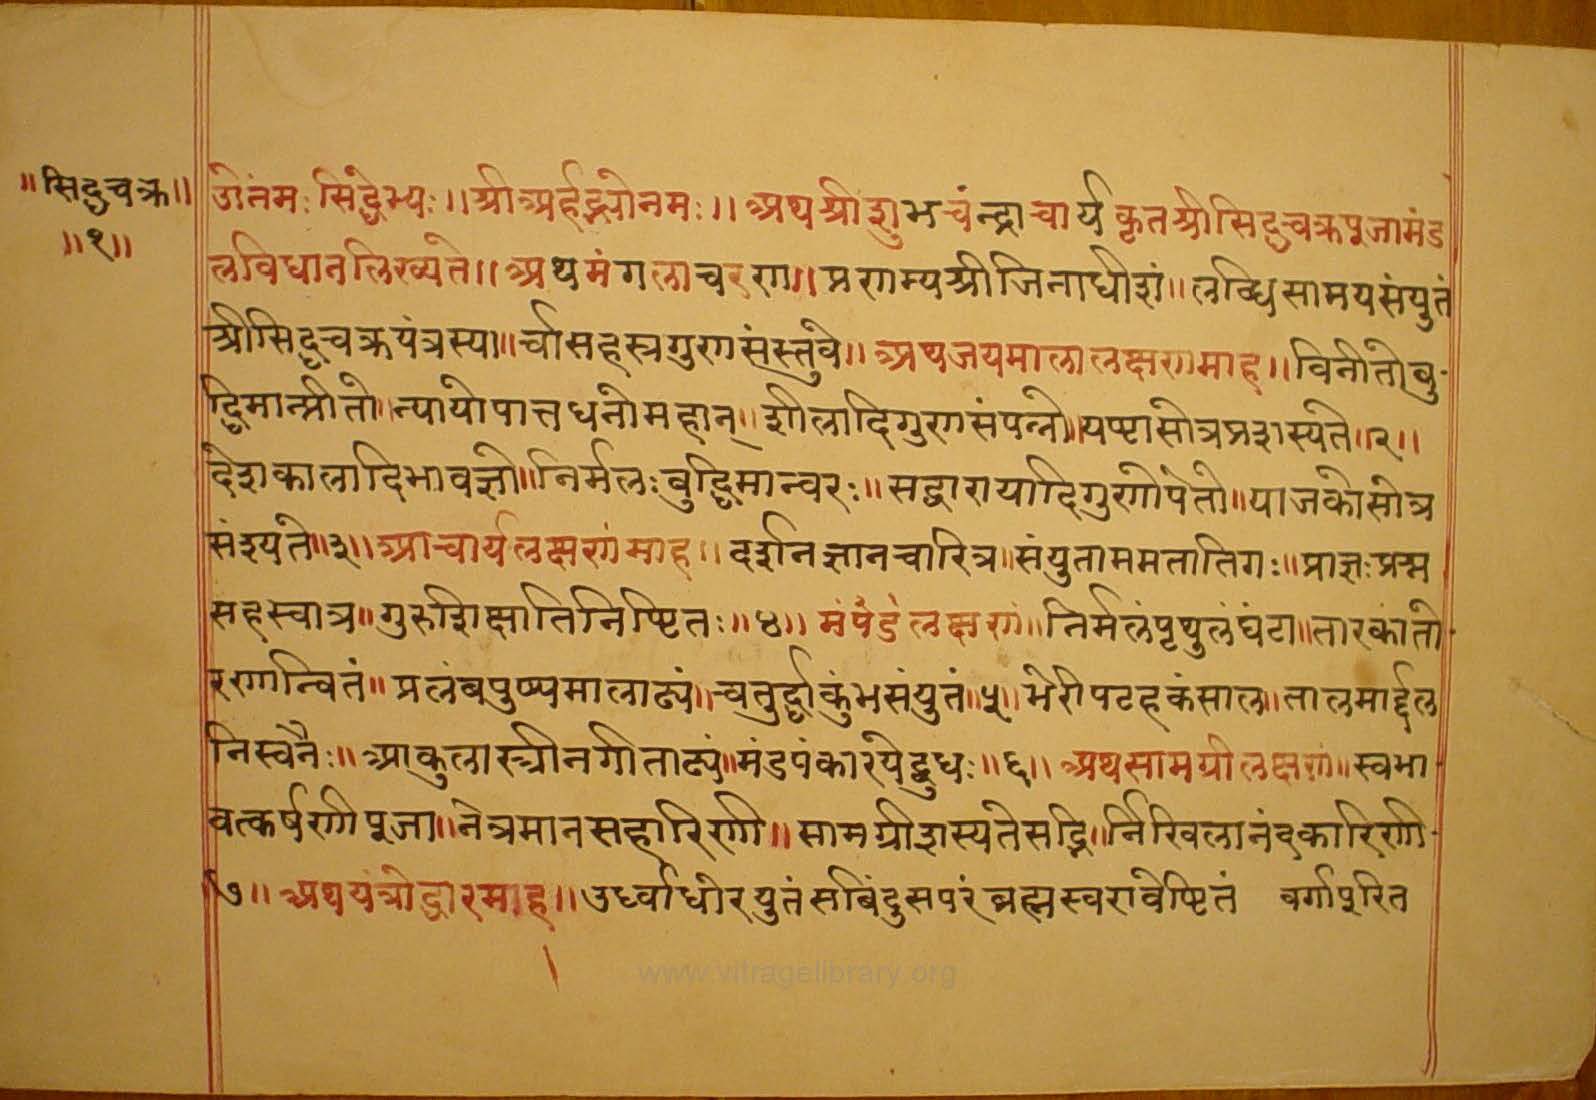 ॥सिद्धचक्र॥
॥१॥
ॐनमः सिद्धेभ्यः॥श्रीअर्हद्भ्योनमः॥अथश्रीशुभचंन्द्राचार्यकृतश्रीसिद्धचक्रपूजामंड
लविधानलिख्यते॥अथमंगलाचरण॥प्रणम्यश्रीजिनाधीशं॥लब्धिसामयसंयुतं
श्रीसिद्धचक्रयंत्रस्या॥र्चासहस्त्रगुणसंस्तुवे॥अथजयमालालक्षणमाह॥विनीतोबु-
द्धिमान्प्रीतो॥न्यायोपात्तधनोमहान्॥शीलादिगुणसंपन्नो॥यष्टासोत्रप्रशस्यते॥२॥
देशकालादिभावज्ञो॥निर्मलःबुद्धिमान्वरः॥सद्वाणयादिगुणोपेतो॥याजकोसोत्र
संश्यते॥३॥आचार्यलक्षणंमाह॥दर्शनज्ञानचारित्र॥संयुताममतातिगः॥प्राज्ञःप्रश्न
सहस्चात्र॥गुरुशिक्षातिनिष्टितः॥४॥मंपंडेलक्षणं॥निर्मलंपृथुलंघंटा॥तारकांतो-
रणान्वितं॥प्रलंबपुष्पमालाढ्यं॥चतुर्द्धाकुंभसंयुतं॥५॥भेरीपटहकंसाल॥तालमार्द्दल
निस्वनैः॥आकुलास्त्रीनगीताढ्यं॥मंडपंकारयेद्बुधः॥६॥अथसामग्रीलक्षणं॥स्वभा-
वत्कर्षणीपूजा॥नेत्रमानसहारिणी॥सामग्रीशस्यतेसद्भि॥र्निखिलानंदकारिणी-
७॥अथयंत्रोद्धारमाह॥उर्ध्वाधोरयुतंसबिंदुसपरंब्रह्मस्वरावेष्टितं वर्गापूरित
www.vitragelibrary.org